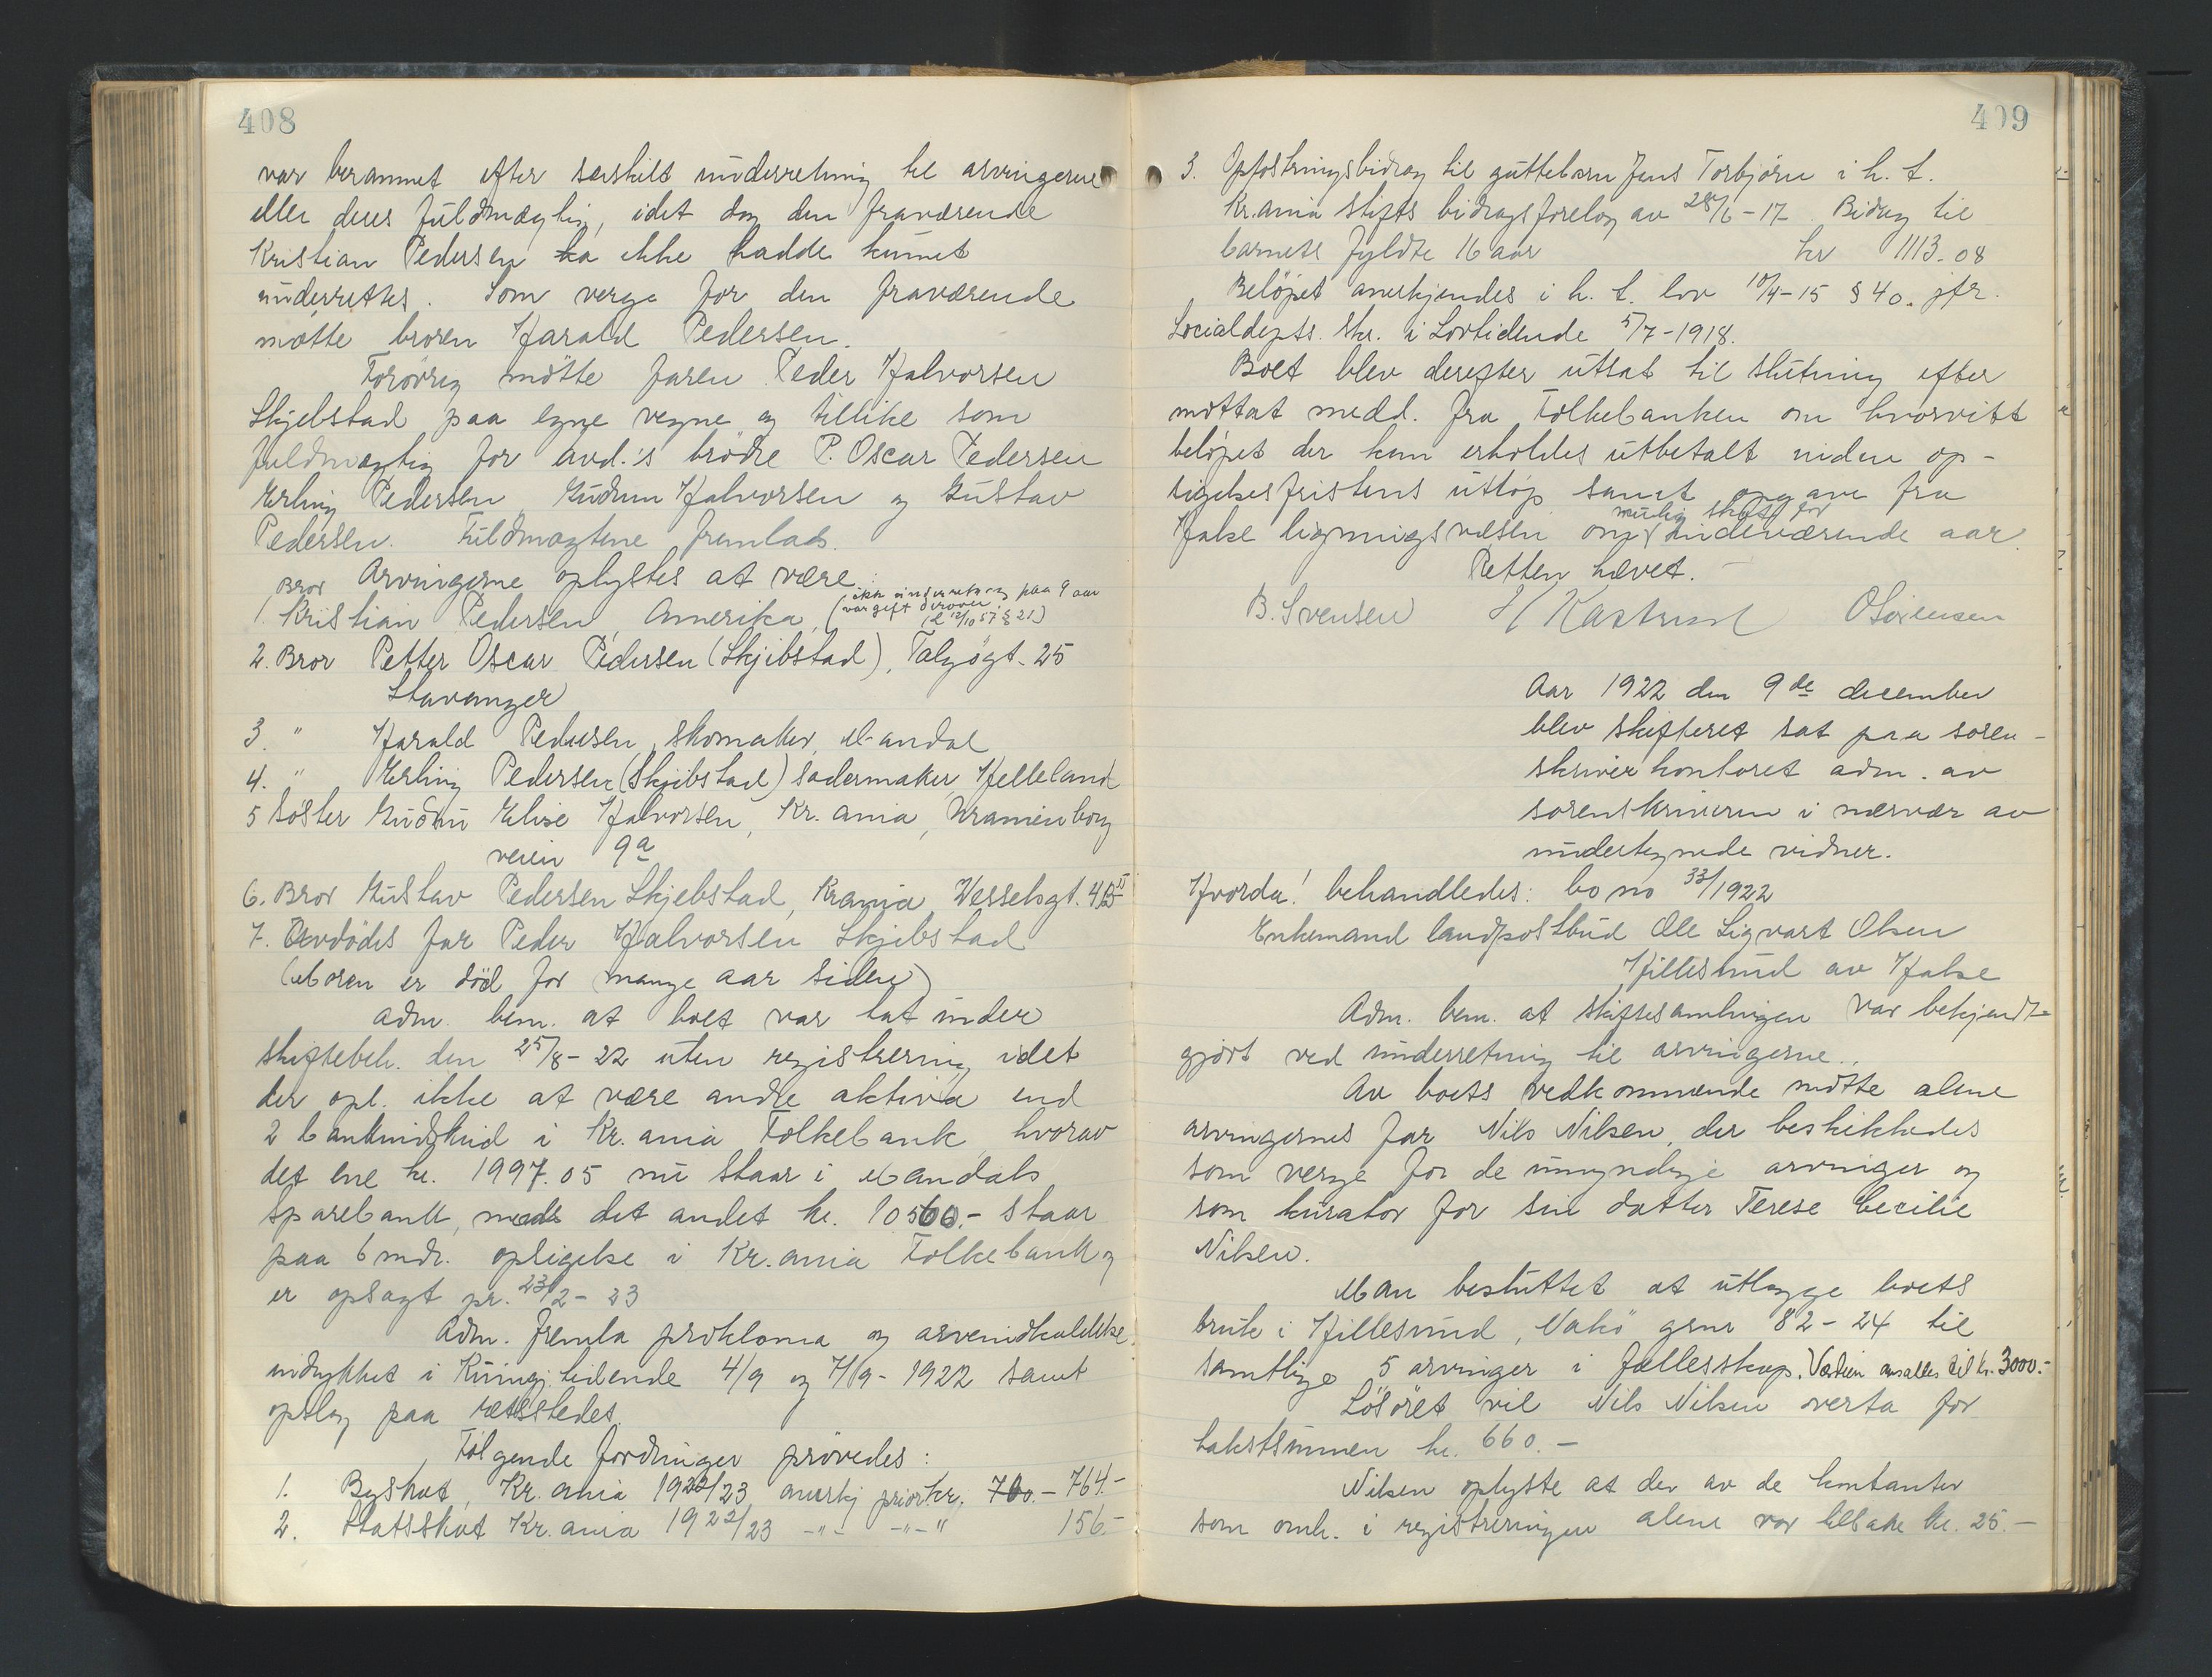 408
var berammet efter særskilt underretning til arvingerne
eller deres fuldmægtig, idet dog den fraværende
Kristian Pedersen ikke hadde kunnet
underrettes. Som verge for den fraværende
møtte broren Harald Pedersen.
Forøvrig møtte faren Peder Halvorsen
Skjebstad paa egne vegne og tillike som
fuldmægtig for avd.'s brødre P. Oscar Pedersen
Erling Pedersen, Gudrun Halvorsen og Gustav
Pedersen. Fuldmagtene fremlaas.
Arvingerne oplystes at være:
1. Bror Kristian Pedersen, Amerika, (ikke underretning paa 9 aar
var gift derover. (L 12/10 57 § 21)
2. Bror Petter Oscar Pedersen (Skjebstad), Talgøgt. 25
Stavanger
3. " Harald Pedersen, skomaker, Mandal
4. " Erling Pedersen (Skjebstad) sadermaker, Helleland
5 Søster Gudrun Elise Halvorsen, Kr.ania, Uranienborg
veien 9a
6. Bror Gustav Pedersen Skjebstad, Krania, Wesselsgt.
7. Avdødes far Peder Halvorsen Skjebstad
(Moren er død for mange aar siden)
Adm. bem. at boet var tat under
skiftebeh. den 25/8-22 uten registrering, idet
der opl. ikke at være andre aktiva end
2 bankindskud i Kr.ania Folkebank, hvorav
det ene kr. 1997.05 nu staar i Mandals
Sparebank, mens det andet kr. 10500.- staar
paa 6 mdr. opsigelse i Kr.ania Folkebank og
er opsagt pr. 23/2-23
Adm. fremla proklama og arveindkaldelse
indrykket i Kungj. tidende 4/9 og 7/9-1922 samt
opslag paa retsstedet.
Følgende fordringer prøvedes:
1. Byskat, Kr.ania 1922/23, anerkj prior. kr. 700.- 764.-
2. Statsskat Kr.ania 1922/23 -"- -"-" 156.-
409
3. Opfostringsbidrag til guttebarn Jens Torbjørn i h. t.
Kr.ania stifts bidragsforelæg av 28/6-17. Bidrag til
barnets fyldte 16 aar kr 1113.08
Beløpet anerkjendes i h. t. lov 10/4-15 § 40. jfr.
Socialdepts. skr. i Lovtidende 5/7-1918.
Boet blev derefter utsat til slutning efter
mottat medd. fra Folkebanken om hvorvidt
beløpet der kan erholdes utbetalt inden op-
sigelsesfristens utløp samt opgave fra
mulig skat for
Halse ligningsvæsen om indeværende aar.
Retten hævet.
B. Svensen H Kastrud O Sørensen
Aar 1922 den 9de december
blev skifteret sat paa soren-
skriverkontoret adm. av
sorenskriveren i nærvær av
undertegnede vidner.
Hvorda! behandledes: bo no 33/1922
Enkemand landpostbud Ole Sigvart Olsen
Hillesund av Halse
Adm. bem. at skiftesamlingen var bekjendt-
gjort ved underretning til arvingerne.
Av boets vedkommende møtte alene
arvingernes far Nils Nilsen, der beskikkedes
som verge for de umyndige arvinger og
som kurator for sin datter Terese Cecilie
Nilsen.
Man besluttet at utlægge boets
bruk i Hillesund, gnr 82-24 til
samtlige 5 arvinger i fællesskap. Værdien ansattes til kr. 3000.-
Løsøret vil Nils Nilsen overta for
takstsummen kr. 660.-
Nilsen oplyste at der av de kontanter
som omh. i registreringen alene var tilbake kr. 25.-